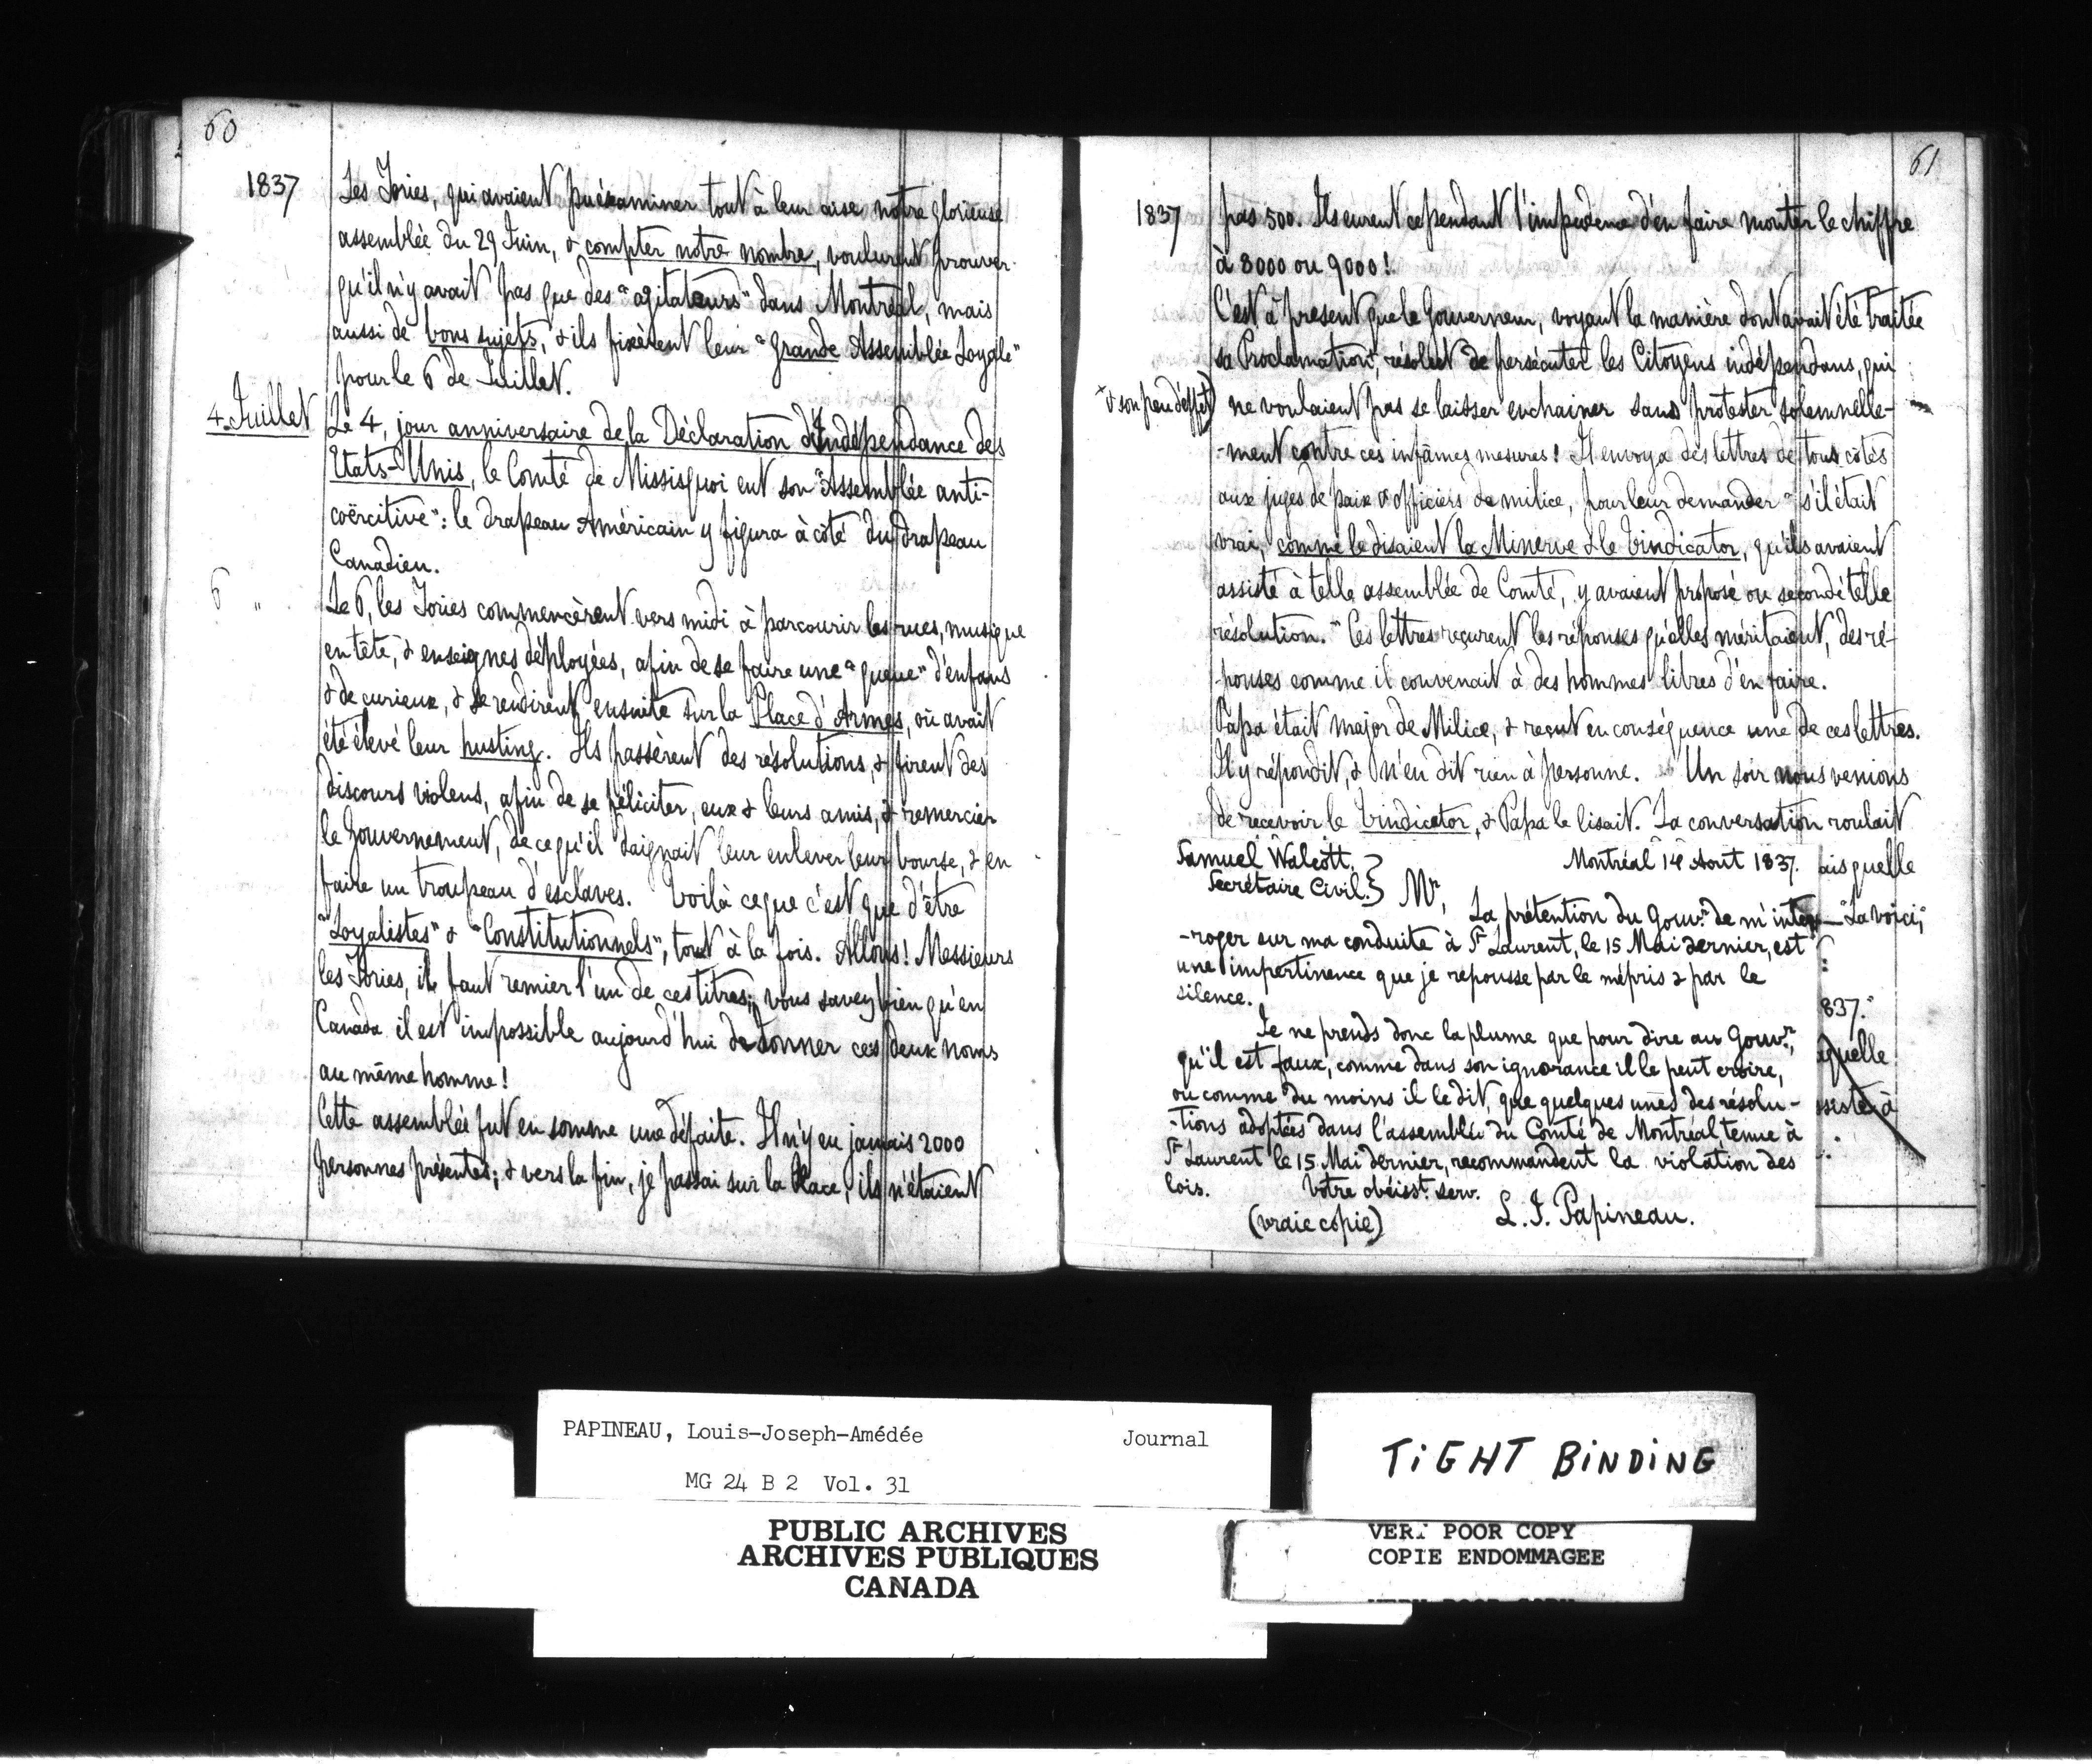 60
1837
Les Tories, qui avaient pu éxaminer tout à leur aise notre glorieuse
assemblée du 29 Juin, & compter notre nombre, voulurent prouver
qu'il n'y avait pas que des "agitateurs" dans Montréal, mais
aussi de bons sujets, & ils fixèrent leur "Grande Assemblée Loyale"
pour le 6 de Juillet.
4 Juillet
Le 4, jour anniversaire de la Déclaration d'Indépendance des
Etats-Unis, le Comté de Missisquoi eut son "Assemblée anti-
coërcitive": le drapeau Américain y figura à côté du drapeau
Canadien.
6 "
Le 6, les Tories commencèrent vers midi à parcourir les rues, musique
en tête, & enseignes déployées, afin de se faire une "queue" d'enfans
& de curieux, & se rendirent ensuite sur la Place d'Armes, où avait
été élevé leur husting. Ils passèrent des résolutions, & firent des
discours violens, afin de se féliciter, eux & leurs amis, & remercier
le Gouvernement, de ce qu'il daignait leur enlever leur bourse, & en
faire un troupeau d'esclaves. Voilà ce que c'est que d'être
"Loyalistes" & "Constitutionnels", tout à la fois. Allons! Messieurs
les Tories, il faut renier l'un de ces titres; vous savez bien qu'en
Canada il est impossible aujourd'hui de donner ces deux noms
au même homme!
Cette assemblée fut en somme une défaite. Il n'y eu jamais 2000
personnes présentes; & vers la fin, je passai sur la Place, ils n'étaient
61
1837
pas 500. Ils eurent cependant l'impudence d'en faire monter le chiffre
à 8000 ou 9000!
C'est à présent que le Gouverneur, voyant la manière dont avait été traitée
sa Proclamation+, résolut de persécuter les Citoyens indépendans, qui
+ & son peu d'effet)
ne voulaient pas se laisser enchainer sans protester solemnelle-
-ment contre ces infâmes mesures! Il envoya des lettres de tous côtés
aux juges de paix & officiers de milice, pour leur demander "s'il était
vrai, comme le disaient la Minerve & le Vindicator, qu'ils avaient
assisté à telle assemblée de Comté, y avaient proposé ou secondé telle
résolution." Ces lettres reçurent les réponses qu'elles méritaient, des ré-
-ponses comme il convenait à des hommes libres d'en faire.
Papa était major de Milice, & reçut en conséquence une de ces lettres.
Il y répondit, & n'en dit rien à personne. Un soir nous venions
de recevoir le Vindicator, & Papa le lisait. La conversation roulait
ais quelle
— "La voici,"
837."
aquelle
ssisté à
Samuel Walcott,
Secrétaire Civil.}
Montréal 14 Aout 1837.
Mr,
La prétention du Gouvr. de m'inter-
-roger sur ma conduite à St Laurent, le 15 Mai dernier, est
une impertinence que je repousse par le mépris & par le
silence.
Je ne prends donc la plume que pour dire au Gouvr.,
qu'il est faux, comme dans son ignorance il le peut croire,
ou comme du moins il le dit, que quelques unes des résolu-
-tions adoptées dans l'assemblée du Comté de Montréal tenue à
St Laurent le 15 Mai dernier, recommandent la violation des
lois.
Votre obéisst. serv.
(vraie copie)
L. J. Papineau.
PAPINEAU, Louis-Joseph-Amédée Journal
MG 24 B 2 Vol. 31
PUBLIC ARCHIVES
ARCHIVES PUBLIQUES
CANADA
TIGHT BINDING
VERY POOR COPY
COPIE ENDOMMAGEE